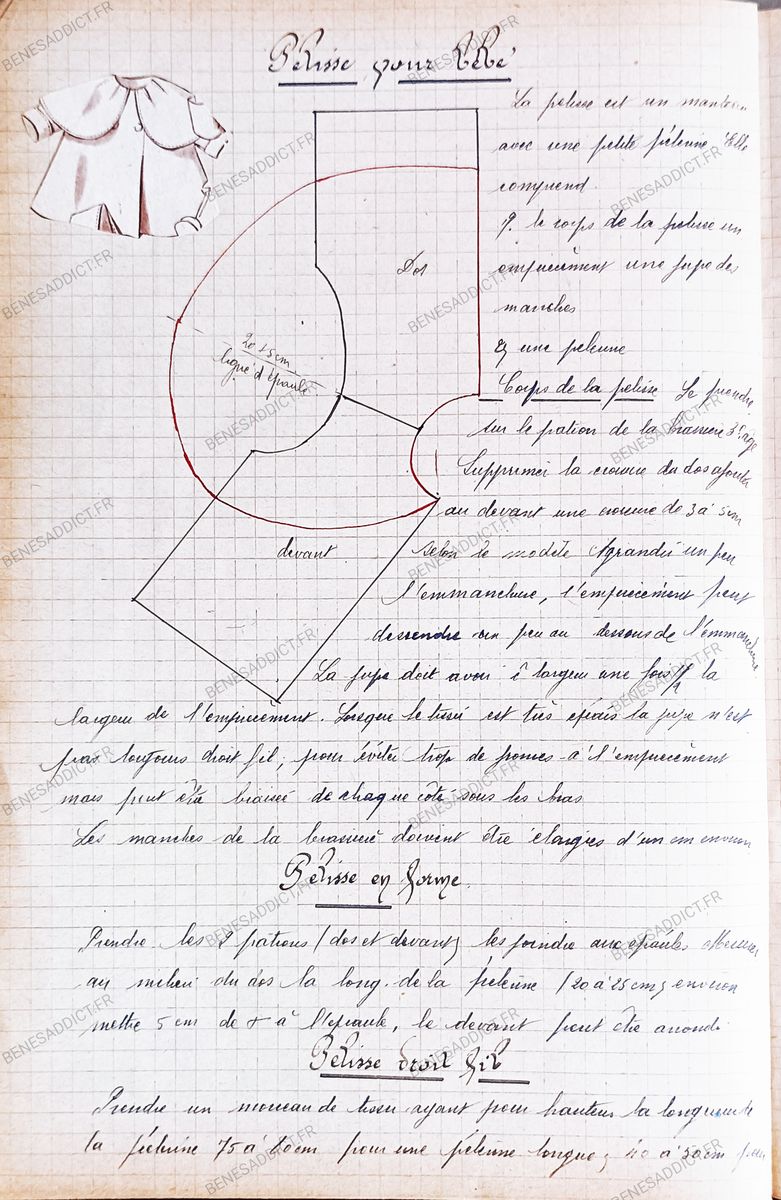 Pelisse pour bébé
La pelisse est un manteau
avec une petite pèlerine. Elle
comprend.
1º. le corps de la pelisse un
empiècement une jupe des
manches
2) une pelerine
Corps de la pelisse Le prendre
sur le patron de la brassière 3e age
Supprimer la croisure du dos ajouter
au devant une croisure de 3 à 5 cm
selon le modèle Agrandir un peu
l'emmanchure, l'empiècement peut
descendre un peu au dessous de l'emmanchure
La jupe doit avoir largeur une fois 1/2 la
largeur de l'empiècement. Lorsque le tissu est très épais la jupe n'est
pas toujours droit fil, pour éviter trop de fronces à l'empiècement
mais peut être biaisée de chaque côté sous les bras
Les manches de la brassière doivent être élargies d'un cm environ
Dos
20 + 5 cm
ligne d'épaule
devant
Pélisse en forme.
Prendre les 2 patrons (dos et devant) les joindre aux épaules Mesurer
au milieu du dos la long. de la pèlerine (20 à 25 cm) environ
mettre 5 cm de + à l'épaule, le devant peut être arrondi
Pélisse droit fil
Prendre un morceau de tissu ayant pour hauteur la longueur de
la pèlerine 75 à cm pour une pèlerine longue, 40 à 50 cm pour
BENESADDICT.FR